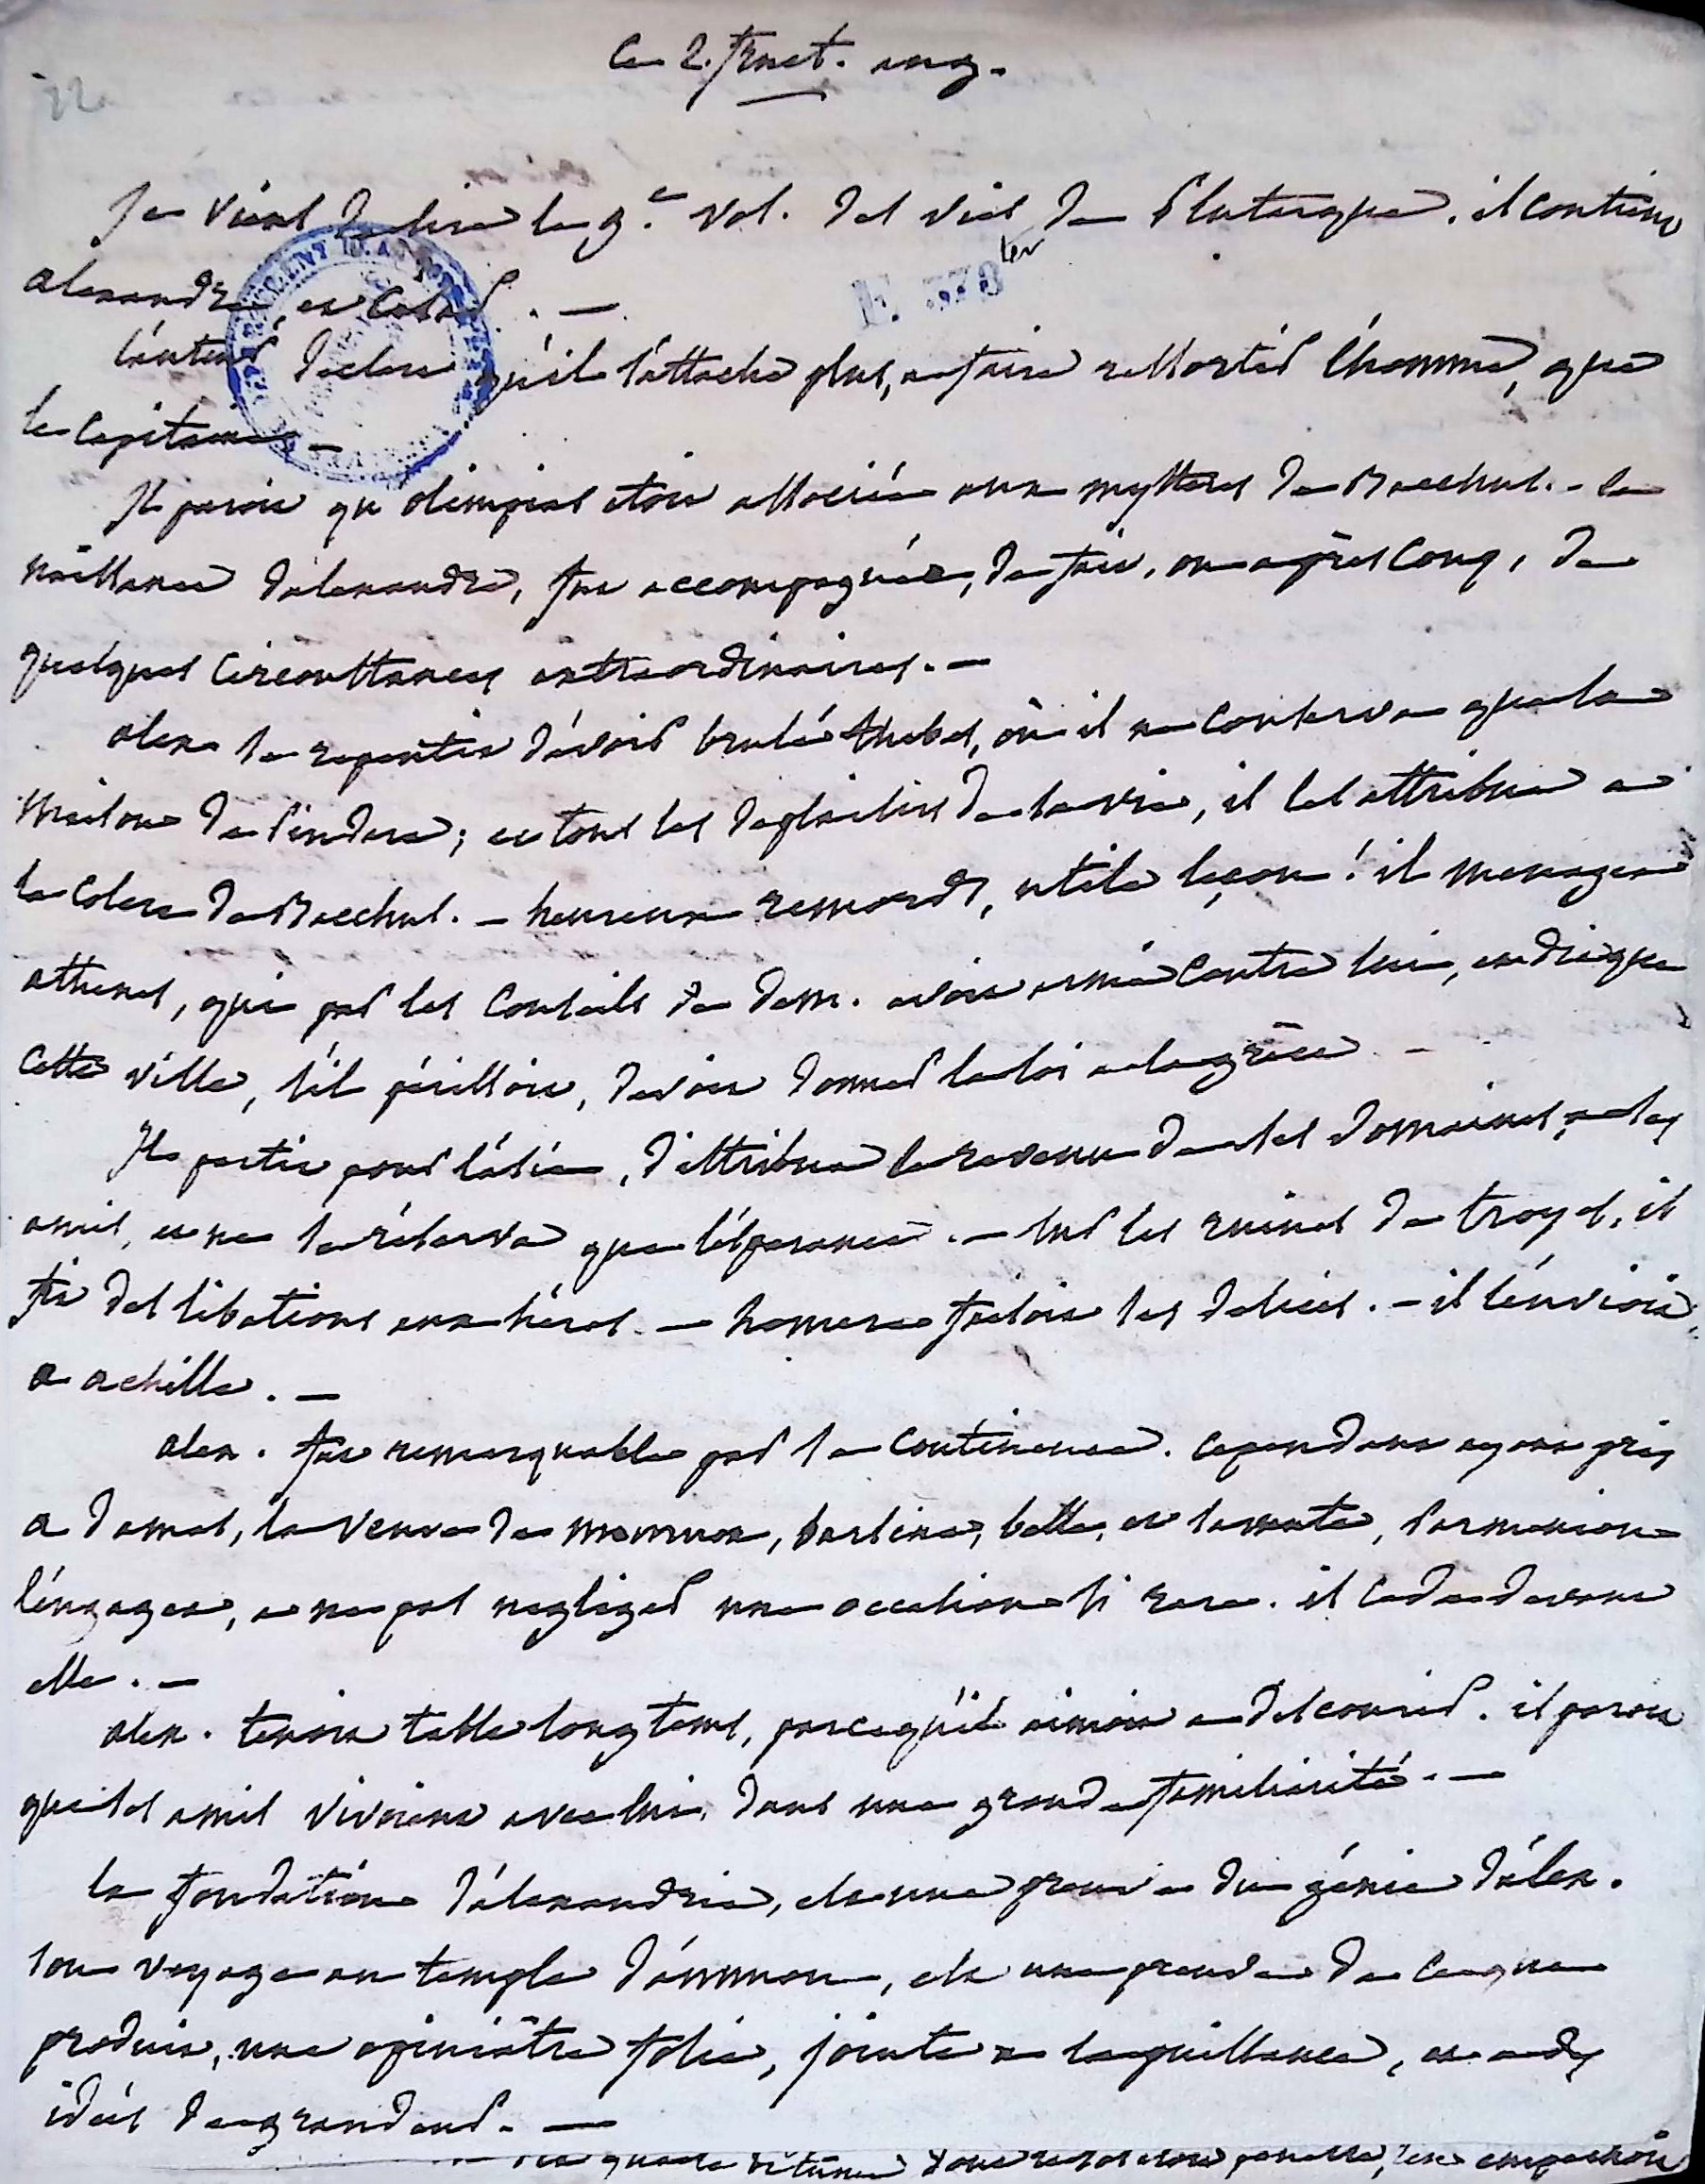 Ce 2. fruct. an 9.
22
Je viens de lire le 9.e vol. des vies de Plutarque. il contient
alexandre, et Cesar. —
l'auteur declare qu'il s'attache plus, a faire ressortir l'homme, que
le Capitaine. —
Il paroit qu'olimpias etoit associée aux mysteres de Bacchus. – la
naissance d'alexandre, fut accompagnée, de fait, ou après coup, de
quelques circonstances extraordinaires. —
alex. se repentit d'avoir brulé thebes, où il ne conserva que la
maison de Pindare ; et tous les deplaisirs de sa vie, il les attribua a
la colere de Bacchus. – heureux remords, utile leçon ! il menagea
athenes, qui par les conseils de dem. avoit armé contre lui, et dit que
cette ville, s'il périssoit, devoit donner la loi a la grèce. –
Il partit pour l'asie, distribua le revenu de ses domaines, a ses
amis, et ne se réserva que l'ésperance. – sur les ruines de troyes, il
fit des libations aux héros. — homere faisoit ses delices. – il l'envioit,
a achille. —
alex. fut remarquable par sa continence. cependant ayant pris
a damas, la veuve de memnon, barsine, belle, et savante, Parmenion
l'engagea, a ne pas negliger une occasion si rare. il ceda devant
elle. —
alex. tenoit table longtems, parcequ'il aimoit a discourir. il paroit
que ses amis vivoient avec lui, dans une grande familiarité. —
la fondation d'alexandrie, est une preuve du génie d'alex.
son voyage au temple d'ammon, est une preuve de ce que
produit, une opiniâtre folie, jointe a la puissance, et a des
idées de grandeur. —